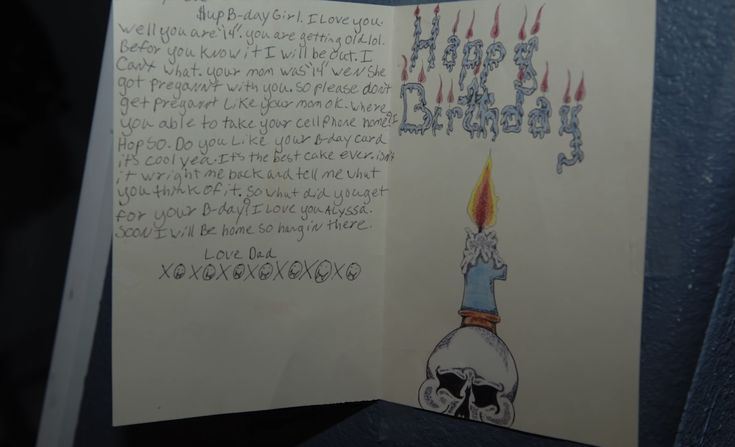 Hup B-day Girl. I Love you.
Well you are "14". you are getting old lol.
Befor you know it I will be out. I
Canx what. your mom was "14" wen she
got pregannt with you. so please don't
get pregannt Like your mom ok. where
you able to take your cell phone home? I
Hop so. Do you Like your B-day card
it's cool yea. It's the best cake ever. isn't
it wright me back and tell me what
you think of it. So what did you get
for your B-day? I Love you Alyssa.
Soon I will Be home so hang in there.
Love Dad
XOXOXOXOXOXOXO
Happy
Birthday